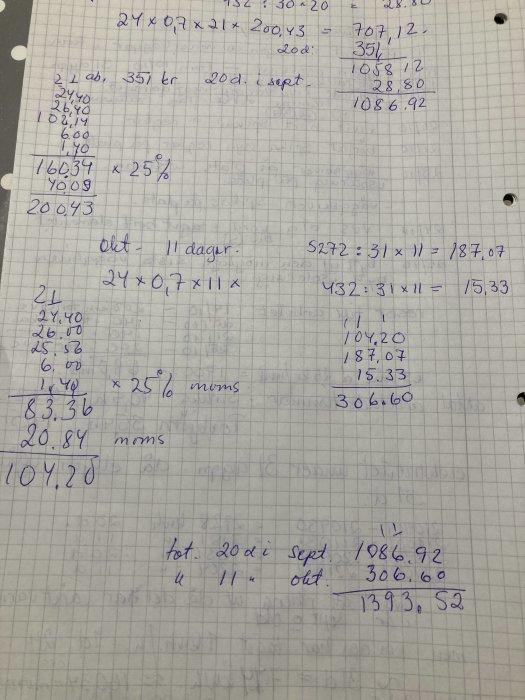 432 : 30 × 20 = 28.80
24 × 0,7 × 21 × 200,43 = 707,12.
20d: 351,
1058 12
28.80
1086.92
21 ab, 351 kr 20d. i sept.
24,40
26,40
102,14
6.00
1,40
160,34 × 25%
40.09
200,43
Okt - 11 dagar.
5272 : 31 × 11 = 187,07
24 × 0,7 × 11 ×
432 : 31 × 11 = 15,33
21
24,40
26.00
25.56
6.00
1,40 × 25% moms
83.36
20.84 moms
104.20
1 1 1
104.20
187,07
15.33
306.60
1 1
tot. 20d i sept 1086.92
" 11 " okt. 306.60
1393.52